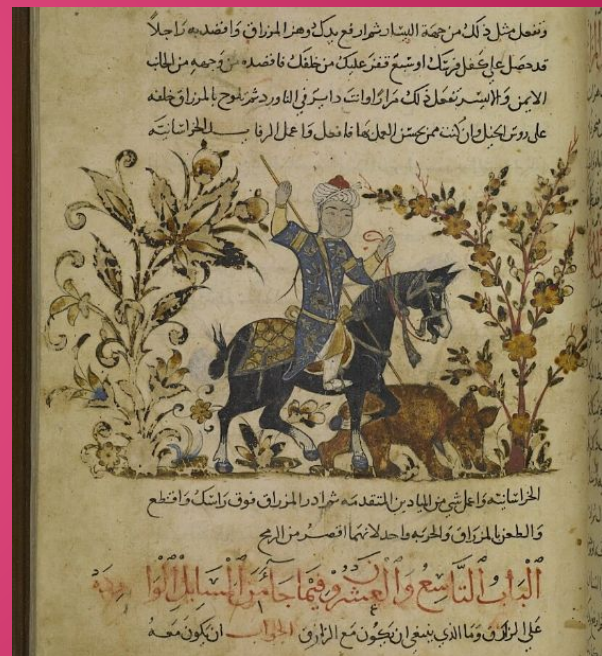 وتفعل مثل ذلك من جهة اليسار ثم ارفع يدك وهز المزراق وافصد به راجلا
قد حصل علي كفل فرسك اوسبع قفز عليك من خلفك فافصده من وجهه من الجانب
الايمن والايسر تفعل ذلك مرارا وانت داير في الناورد ثم تلوح بالمزراق خلفه
علي روس الخيل وان كنت ممن يحسن العمل بها فافعل واعمل الخراسانيه
الخراسانيه واعمل شي من الميادين المتقدمه ثم ادر المزراق فوق راسك واقتطع
والطعن بالمزراق والحربه واحد لانهما اقصر من الرمح
الباب التاسع والعشرون فيما جا من المسايل
علي الزارق وما الذي ينبغي ان يكون مع الزارق الجواب ان يكون معه